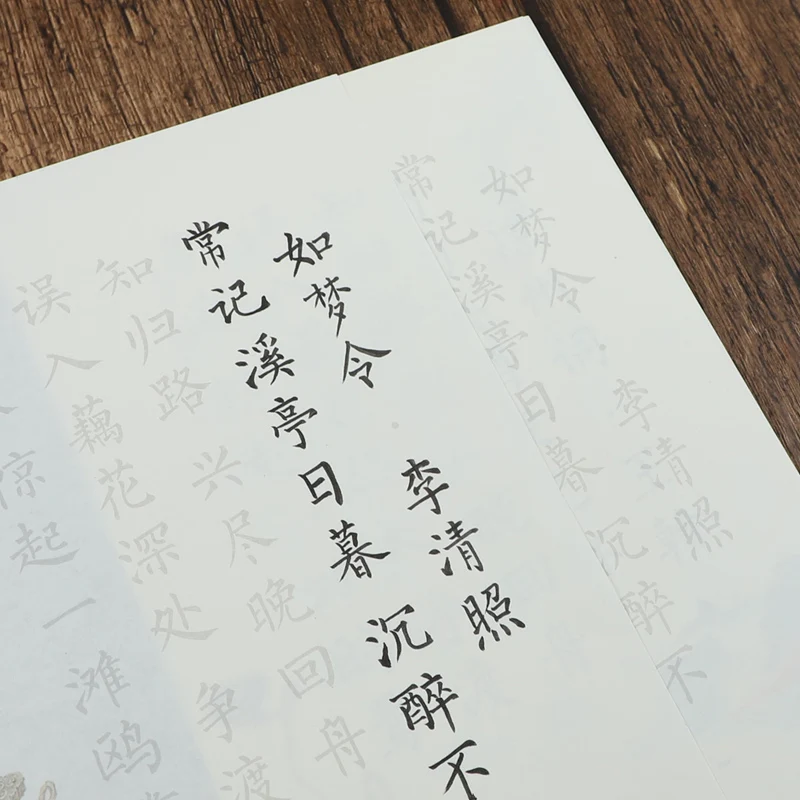 如梦令·李清照
常记溪亭日暮 沉醉不
如梦令·李清照
常记溪亭日暮 沉醉不
知归路 兴尽晚回舟
误入藕花深处 争渡
惊起一滩鸥